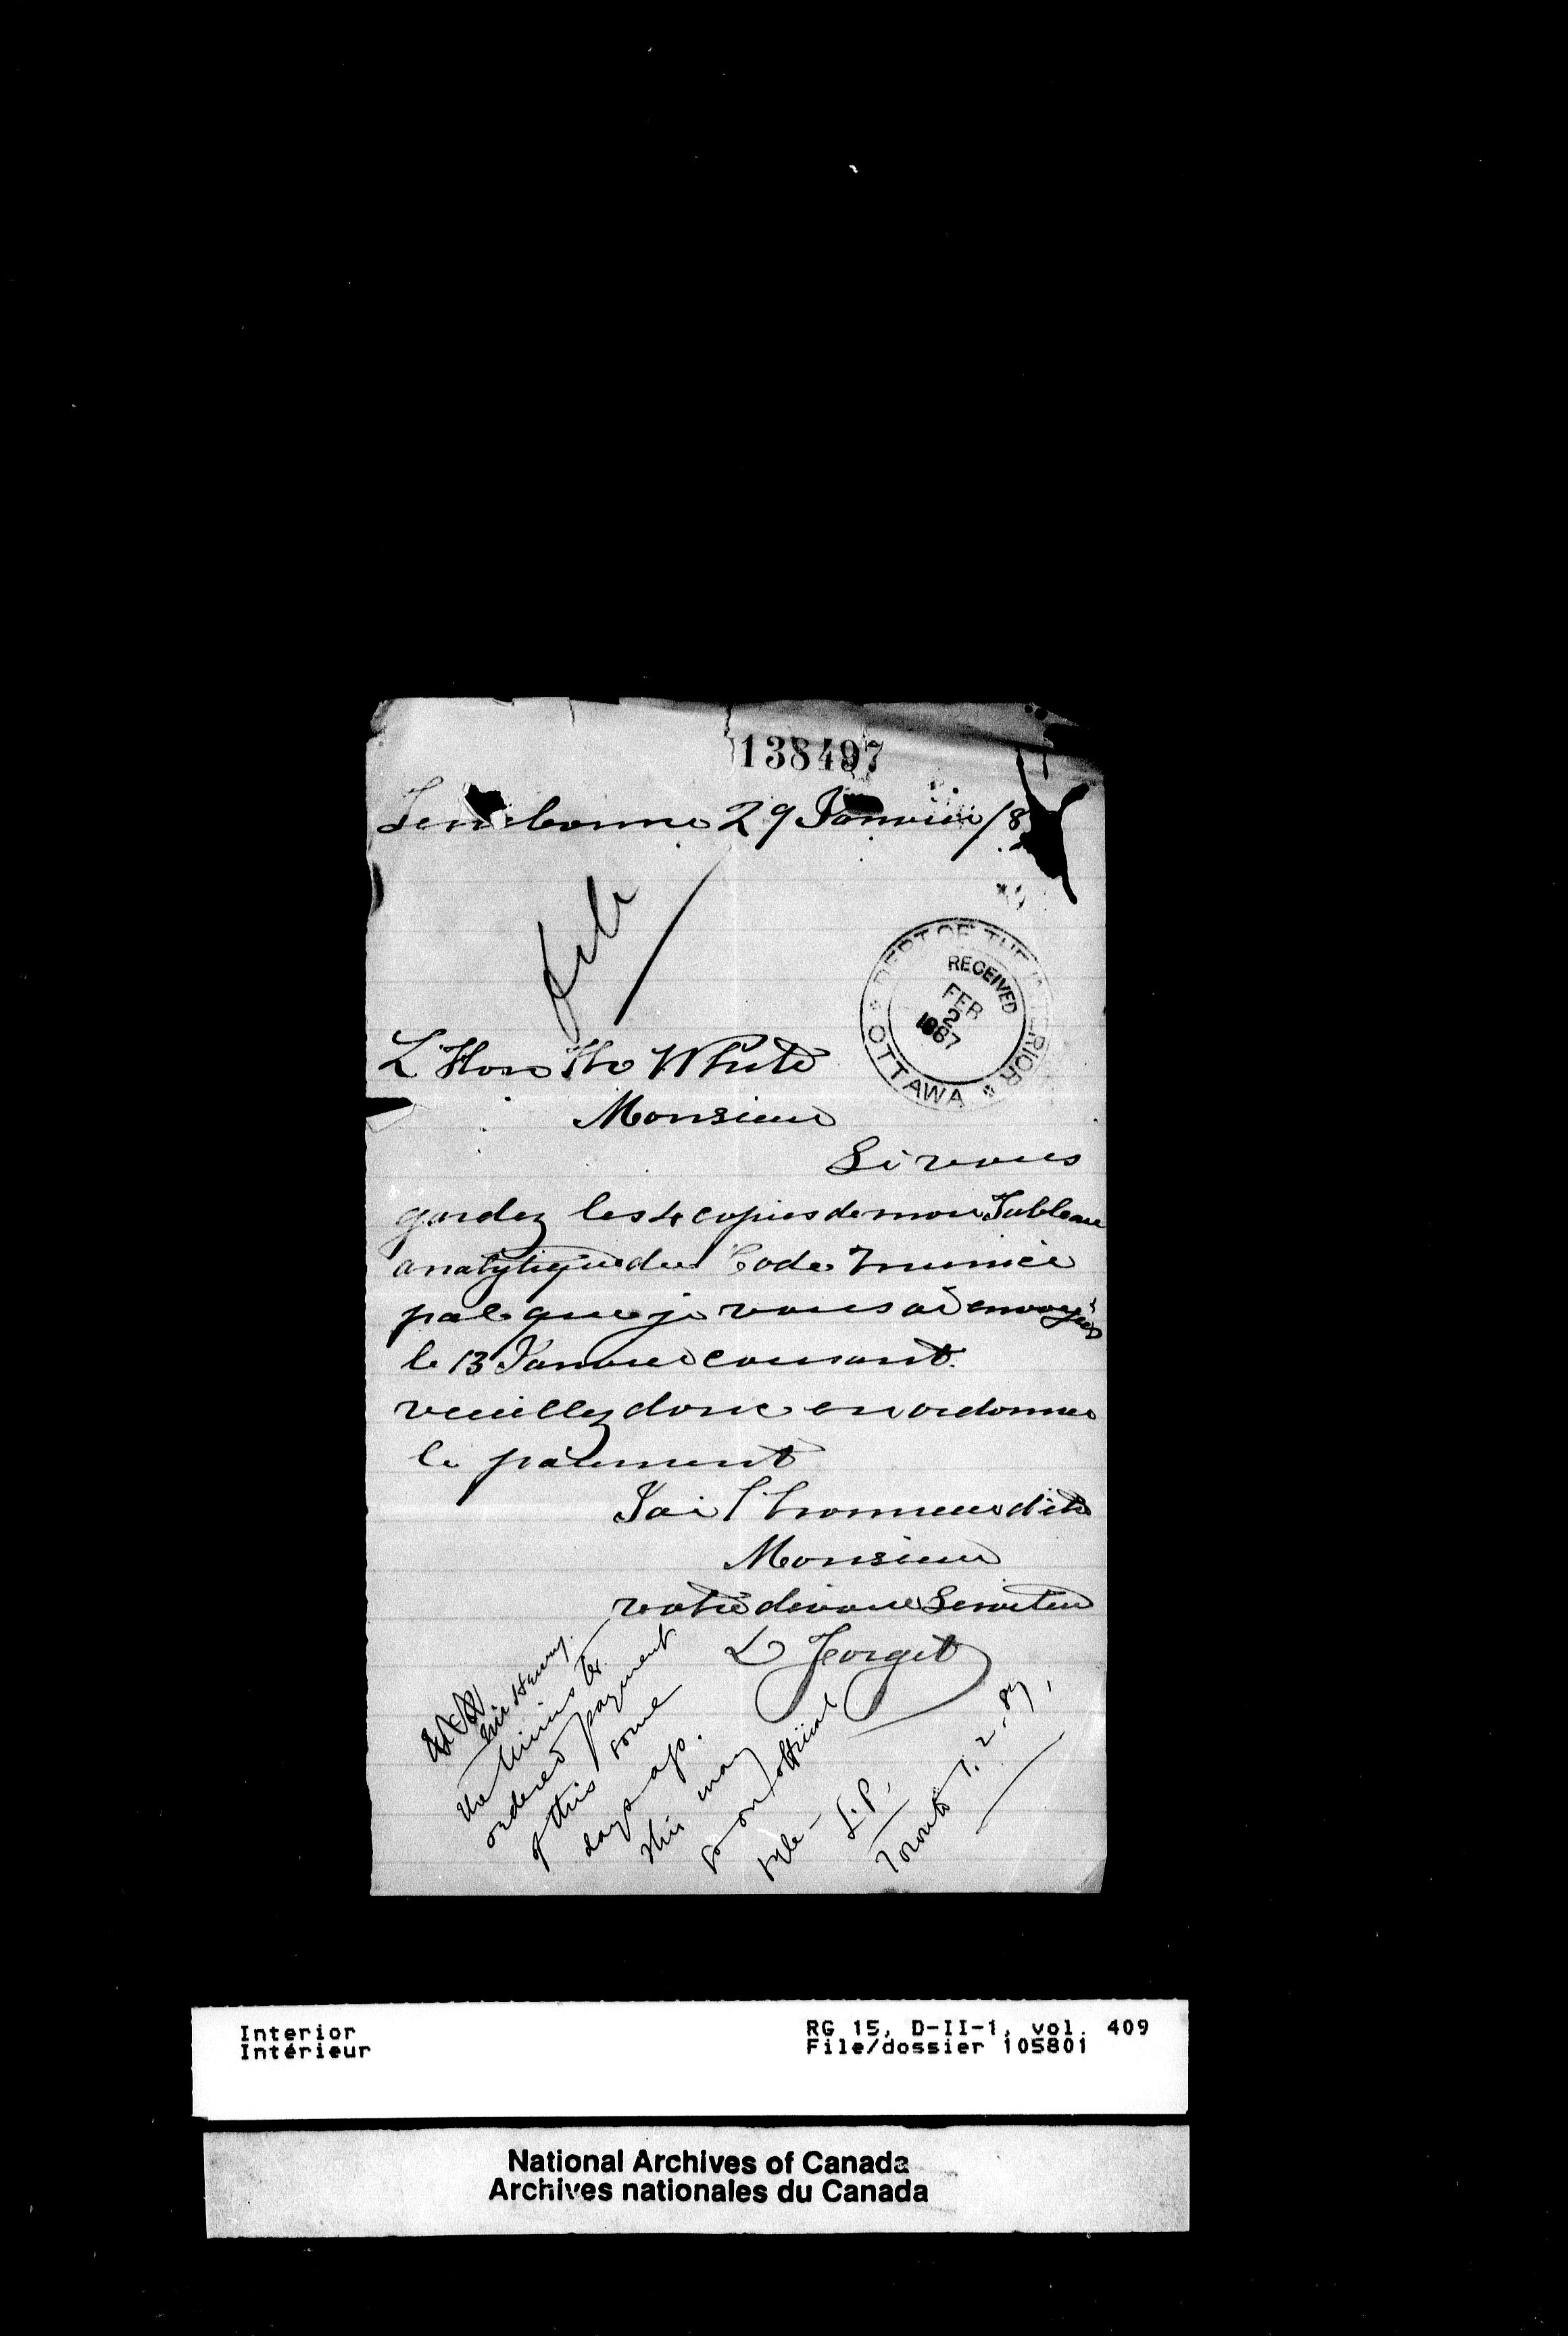 138497
Terrebonne 29 Janvier /8
file
DEPT OF THE INTERIOR
OTTAWA
RECEIVED
FEB
2
1887
L'Hon Tho White
Monsieur
Si vous
gardez les 4 copies de mon Tableau
analytique du Code Munici
pal que je vous ai envoyées
le 13 Janvier courant.
veuillez donc en ordonner
le paiement
J'ai l'honneur d'être
Monsieur
votre dévoué Serviteur
L Forget
Mr Henry.
The Minister
ordered payment
of this some
days ago.
This may
go on official
file —
L.P.
Toronto 1.2.87.
Interior
Intérieur
RG 15, D-II-1, vol. 409
File/dossier 105801
National Archives of Canada
Archives nationales du Canada